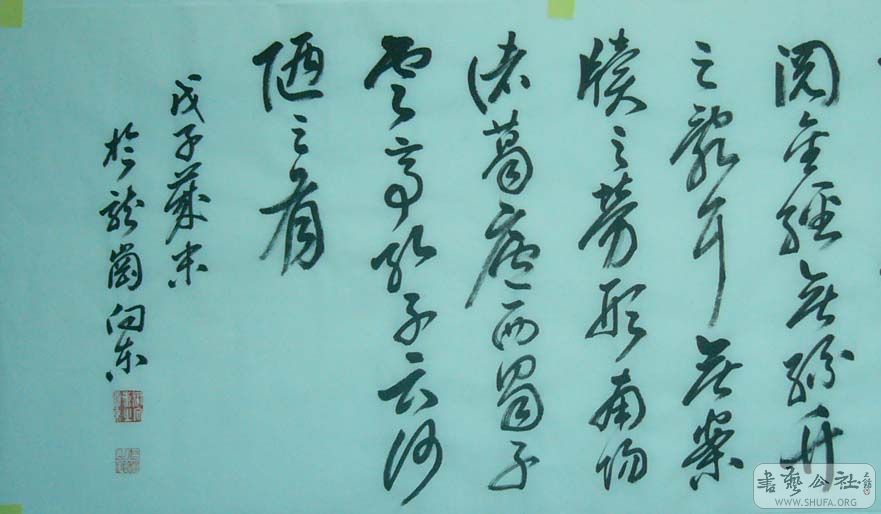 閱金經無絲竹
之亂耳無案
牘之勞形南陽
诸葛廬西蜀子
雲亭孔子云何
陋之有
戊子歲末
於龍崗向東
書藝公社
WWW.SHUFA.ORG